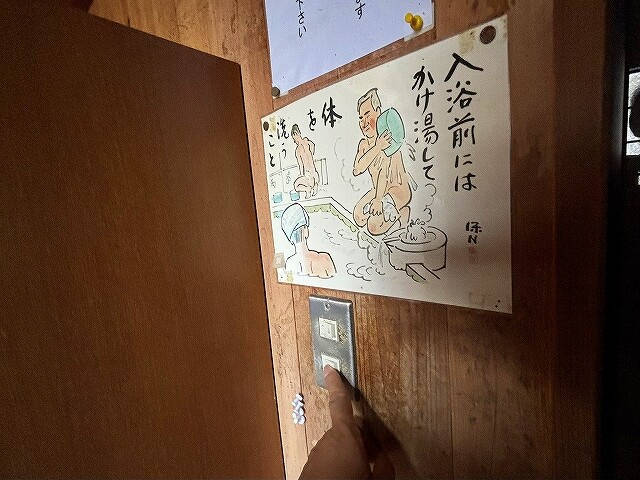 す
下さい
入浴前には
かけ湯して
体
を
洗うこと